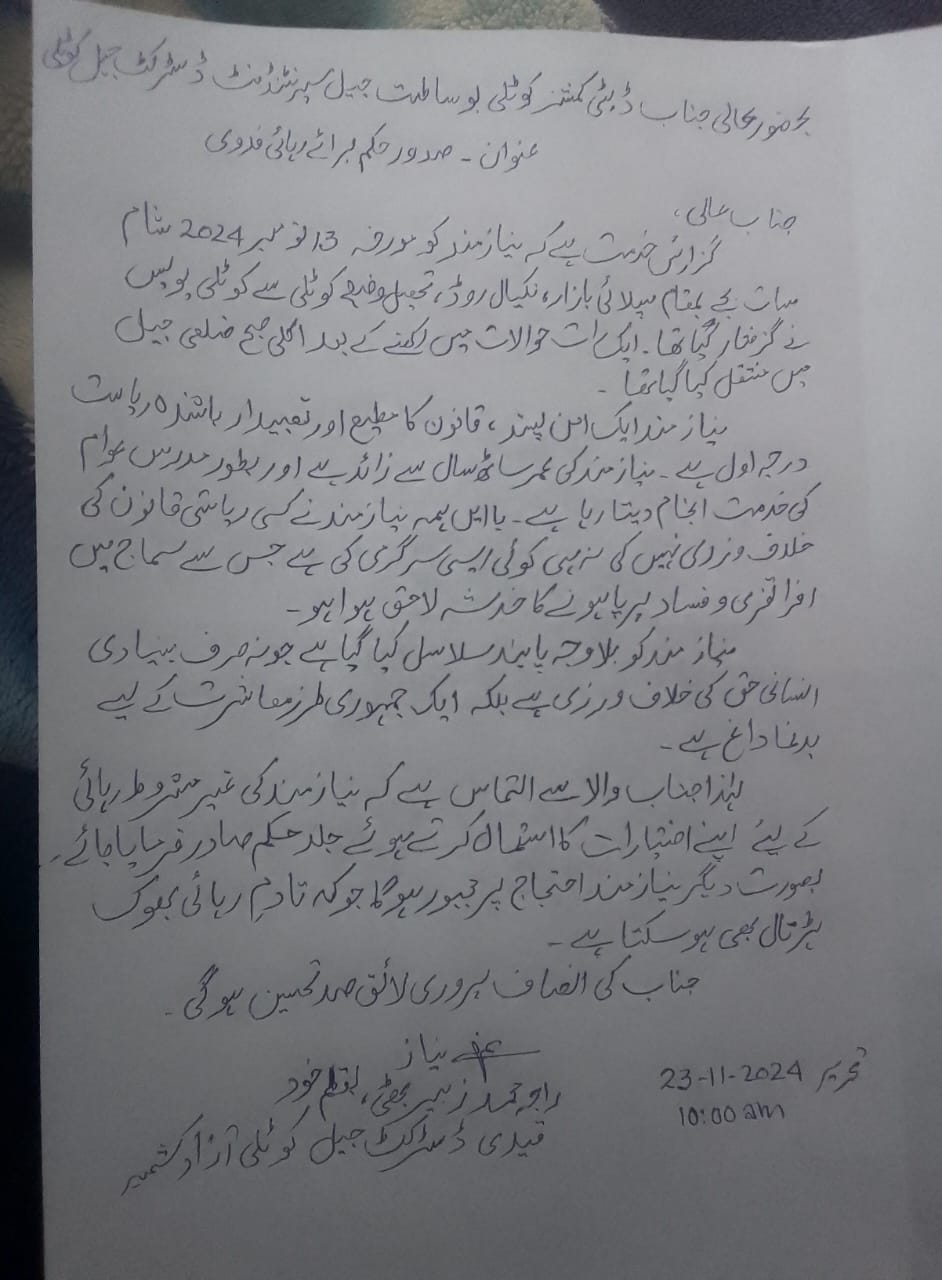 بحضور عالی جناب ڈپٹی کمشنر کوٹلی بوساطت جیل سپرنٹنڈنٹ ڈسٹرکٹ جیل کوٹلی
عنوان ۔ صدور حکم برائے رہائی فدوی
جناب عالی،
گزارش خدمت ہے کہ نیاز مند کو مورخہ 13 نومبر 2024 شام
سات بجے بمقام سپلائی بازار، نکیال روڈ، تحصیل و ضلع کوٹلی سے کوٹلی پولیس
نے گرفتار کیا تھا۔ ایک رات حوالات میں رکھنے کے بعد اگلی صبح ضلعی جیل
میں منتقل کیا گیا تھا ۔
نیاز مند ایک امن پسند، قانون کا مطیع اور تعبیدار باشندہ ریاست
درجہ اول ہے ۔ نیاز مند کی عمر ساٹھ سال سے زائد ہے اور بطور مدرس عوام
کی خدمت انجام دیتا رہا ہے ۔ باایں ہمہ نیاز مند نے کسی ریاستی قانون کی
خلاف ورزی نہیں کی نہ ہی کوئی ایسی سرگرمی کی ہے جس سے سماج میں
افراتفری و فساد برپا ہونے کا خدشہ لاحق ہوا ہو ۔
نیاز مند کو بلاوجہ پابند سلاسل کیا گیا ہے جو نہ صرف بنیادی
انسانی حق کی خلاف ورزی ہے بلکہ ایک جمہوری طرز معاشرت کے لیے
بدنما داغ ہے ۔
لہٰذا جناب والا سے التماس ہے کہ نیاز مند کی غیر مشروط رہائی
کے لیئے اپنے اختیارات کا استعمال کرتے ہوئے جلد حکم صادر فرمایا جائے ۔
بصورت دیگر نیاز مند احتجاج پر مجبور ہوگا جو کہ تادمِ رہائی بھوک
ہڑتال بھی ہو سکتا ہے ۔
جناب کی انصاف پروری لائق صد تحسین ہو گی ۔
عرضے نیاز
راجہ محمد زبیر بھٹی، بقلم خود
قیدی ڈسٹرکٹ جیل کوٹلی آزاد کشمیر
تحریر 23-11-2024
10:00 am